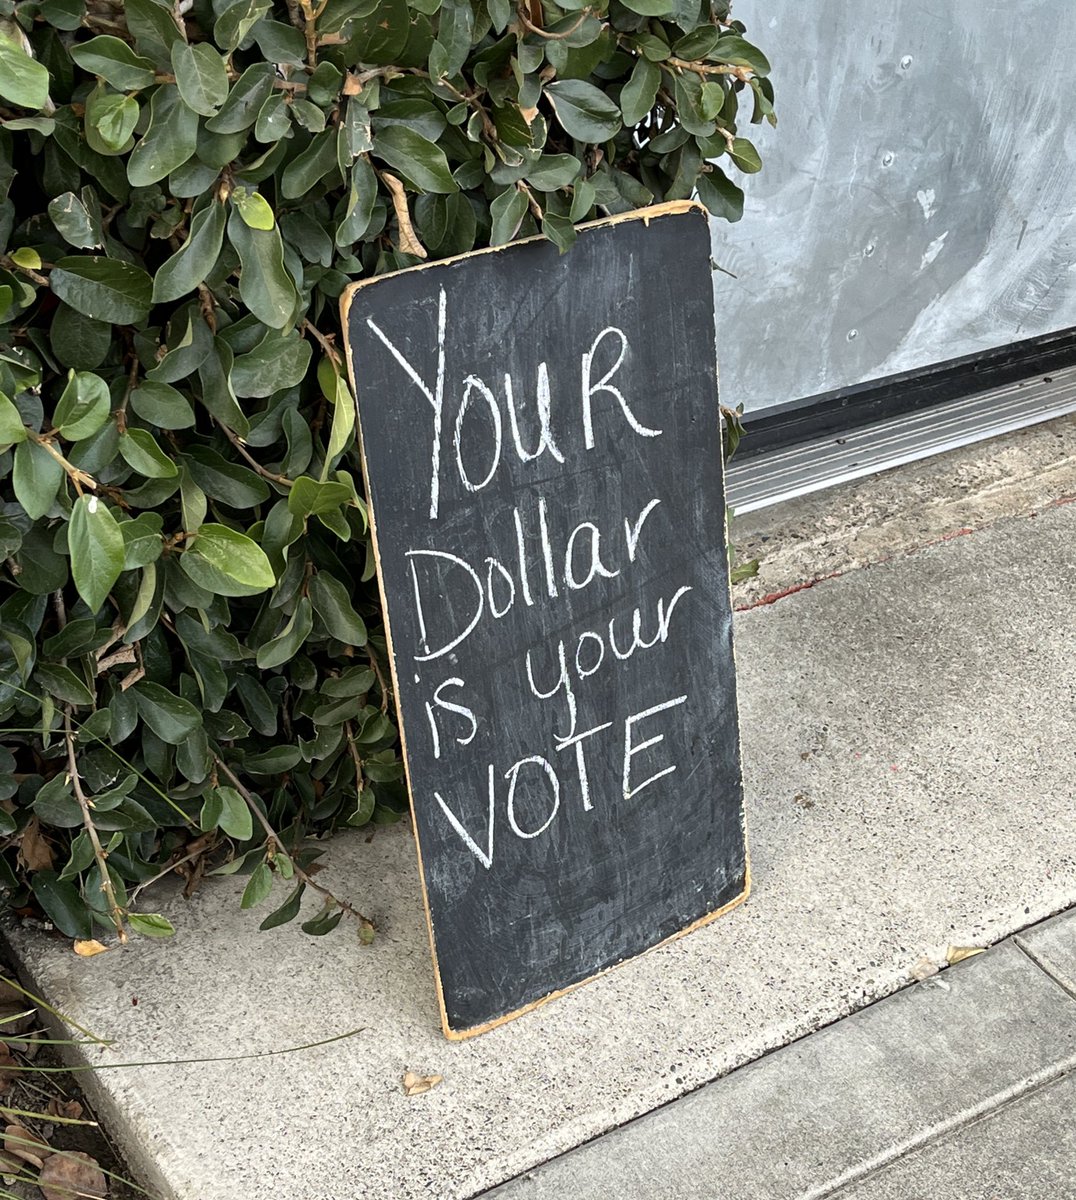 YOUR
Dollar
is your
VOTE